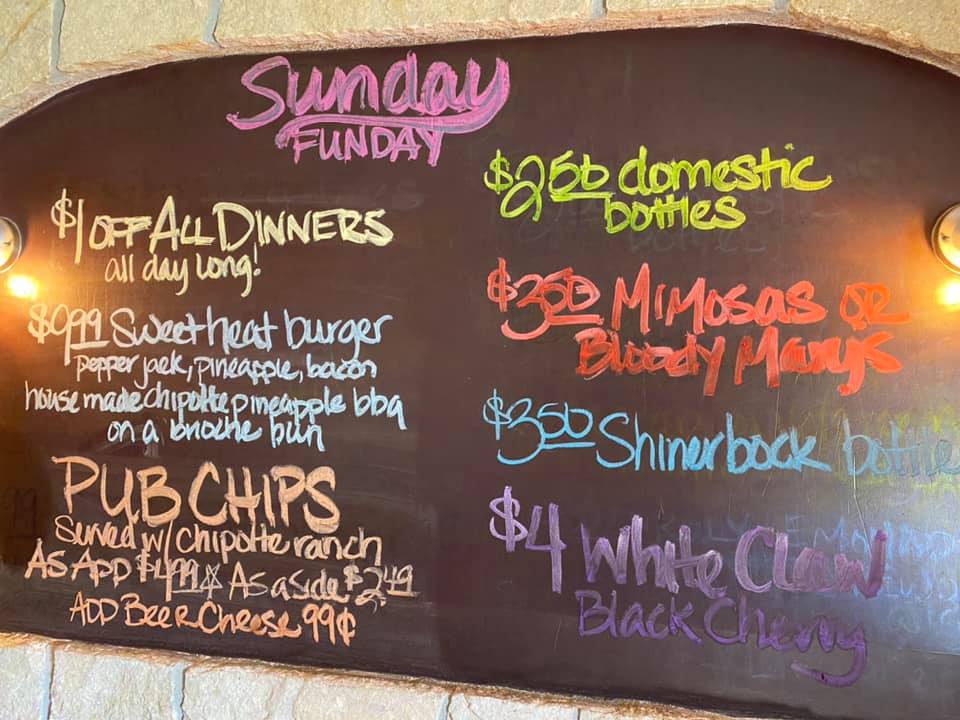 Sunday
FUNDAY
$1 OFF ALL DINNERS
all day long!
$9.99 Sweet heat burger
pepper jack, pineapple, bacon
house made chipotle pineapple bbq
on a brioche bun
PUB CHIPS
Served w/ chipotle ranch
AS APP $4.99 ☆ AS a side $2.49
ADD BEER Cheese 99¢
$2.50 domestic
bottles
$3.50 MiMosas OR
Bloody Marys
$3.50 Shinerbock bottle
$4 White Claw
Black Cherry